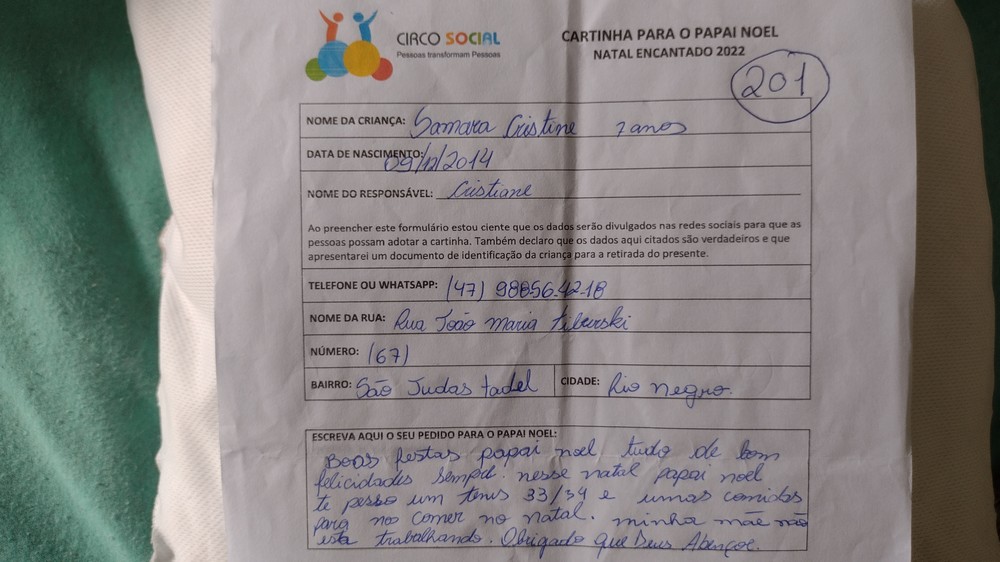 CIRCO SOCIAL
Pessoas transformam Pessoas
CARTINHA PARA O PAPAI NOEL
NATAL ENCANTADO 2022
201
NOME DA CRIANÇA: Samara Cristine 7 anos
DATA DE NASCIMENTO: 09/12/2014
NOME DO RESPONSÁVEL: Cristiane
Ao preencher este formulário estou ciente que os dados serão divulgados nas redes sociais para que as
pessoas possam adotar a cartinha. Também declaro que os dados aqui citados são verdadeiros e que
apresentarei um documento de identificação da criança para a retirada do presente.
TELEFONE OU WHATSAPP: (47) 98856.4218
NOME DA RUA: Rua João Maria
NÚMERO: (67)
BAIRRO: São Judas tadel CIDADE: Rio Negro.
ESCREVA AQUI O SEU PEDIDO PARA O PAPAI NOEL:
Boas festas papai noel tudo de bom
felicidades sempre. nesse natal papai noel
te pesso um tenis 33/34 e umas comidas
para nos comer no natal. minha mãe não
esta trabalhando. Obrigado que Deus Abençoe.